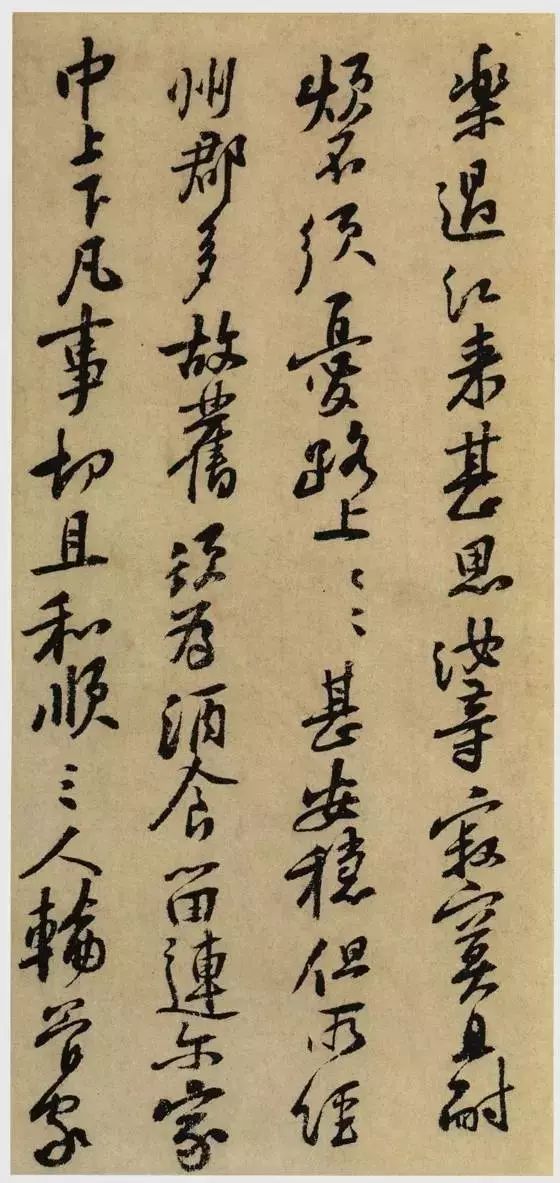 樂過江來甚思汝等寂寞且耐
煩不須憂路上路上甚安穩但所經
州郡多故舊須為酒食留連尔家
中上下凡事切且和順三人輪管家